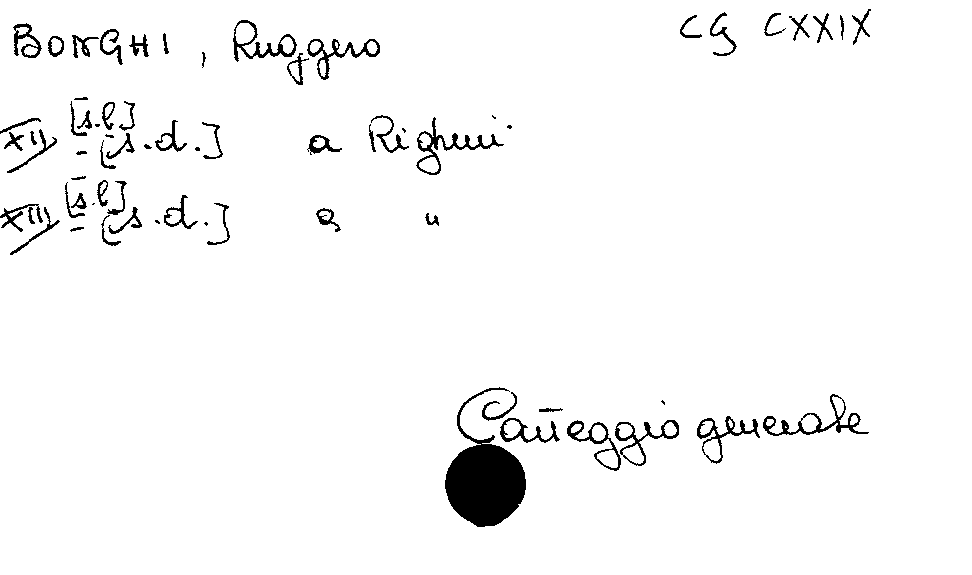 BONGHI, Ruggero CG CXXIX
XII [s.l.] - [s.d.] a Righini
XIII [s.l.] - [s.d.] a "
Carteggio generale